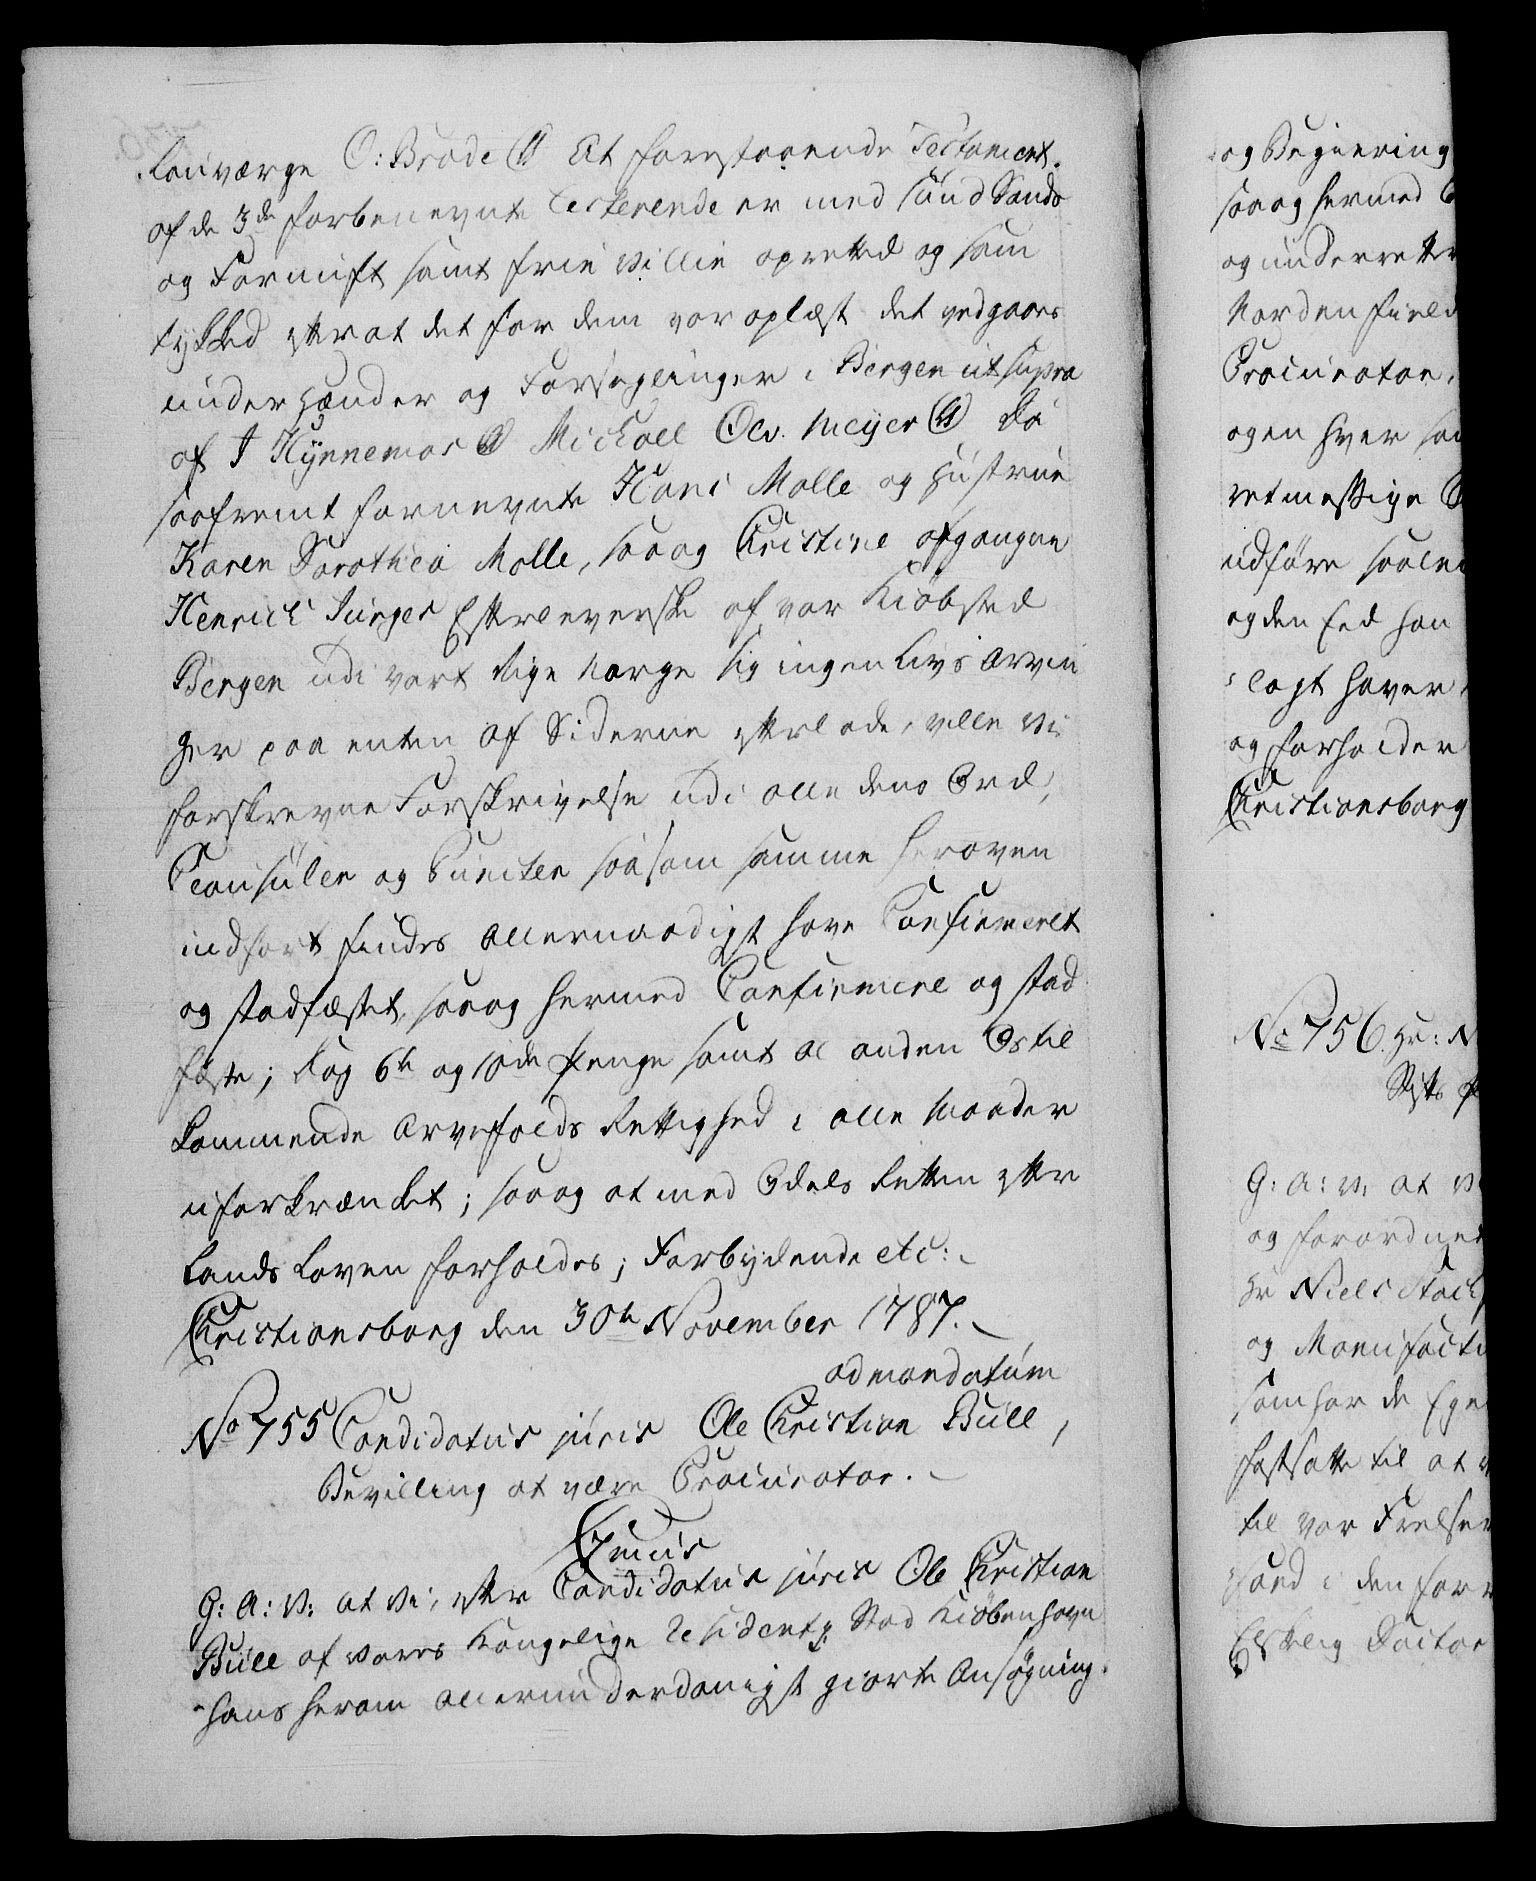 Lauværge O: Brade (LS) At forestaaende Testament
af de 3de forbenevnte Testerende er med sund Sands
og Fornuft samt frie villie opretted og sam
tykked efter at det for dem var oplæst det vedgaaes
under Hænder og Forseglinger i Bergen ut supra
af J Hÿnnemor (LS) Michael Olv. Meÿer (LS) Da
saafremt fornevnte Hans Malle og Hustrue
Karen Dorothea Malle, saa og Christine afgangne
Henrich Jürges Efterleverske af vor Kiöbsted
Bergen udi vort Rige Norge sig ingen Livs Arvin
ger paa enten af Siderne efterlade, ville Vi
forskrevne Forskrivelse udi alle dens Ord,
Clausuler og Puncter saasom samme heroven
indfört findes Allernaadigst have Confirmeret
og stadfæstet, saa og hermed Confirmere og stad
fæste; Dog 6te og 10de Penge samt al anden Os til
kommende Arvefalds Rettighed i alle Maader
uforkrænket; saa og at med Odels Retten efter
Lands Loven forholdes; Forbydende etc:
Christiansborg den 30te November 1787.
ad mandatum
No 755 Candidatus juris Ole Christian Bull,
Bevilling at være Procurator.
Gratis
G: A: V: at Vi, efter Candidatus juris Ole Christian
Bull af Vores Kongelige Residentz Stad Kiöbenhavn
hans herom allerunderdanigst giorte Ansögning
og Begiering
saa og hermed
og underrette
Nordenfield
Procurator,
og en hver
retmessige
udföre saaled
og den Eed han
lagt haver
og forholder
Christiansborg
No 756. Hr: N
Stifts
G: A: V: at V
og forordnet
Hr Niels Stock
og Manufactu
som har de Ege
fastsatte til at
til vor Frelser
stand i den
Doctor